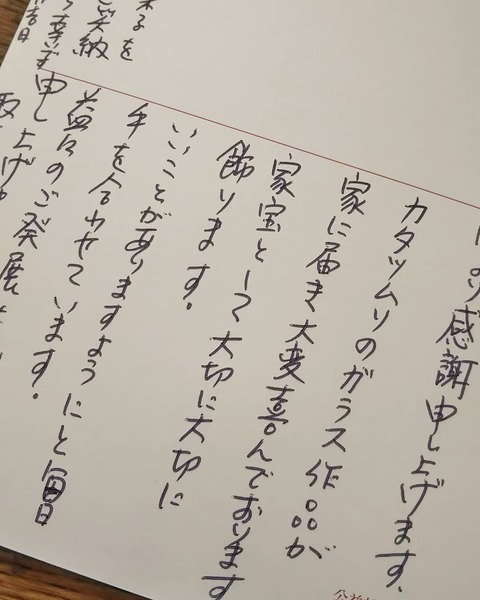 より感謝申し上げます、
カタツムリのガラス作品が
家に届き大変喜んでおります
家宝として大切に大切に
飾ります。
いいことがありますようにと毎日
手を合わせています。
益々のご発展
申し上げ
を
笑納
幸甚
吉日